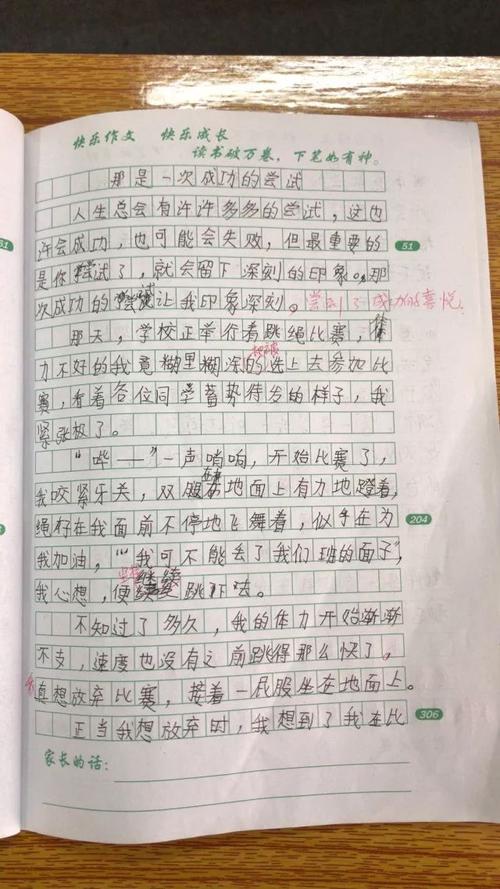 快乐作文 快乐成长
读书破万卷，下笔如有神。
那是一次成功的尝试
人生总会有许许多多的尝试，这也
许会成功，也可能会失败，但最重要的
是你尝试了，就会留下深刻的印象。那
次成功的尝试让我印象深刻。尝到了成功的喜悦
那天，学校正举行着跳绳比赛，体
力不好的我竟糊里糊涂的被选上去参加比
赛，看着各位同学蓄势待发的样子，我
紧张极了。
“哔——”一声哨响，开始比赛了，
我咬紧牙关，双脚在地面上有力地蹬着，
绳仔在我面前不停地飞舞着，似乎在为
我加油，“我可不能丢了我们班的面子”，
我心想，便继续跳下去。
不知过了多久，我的体力开始渐渐
不支，速度也没有之前跳得那么快了，
真想放弃比赛，接着一屁股坐在地面上。
正当我想放弃时，我想到了我在比
家长的话：
51
204
306
51